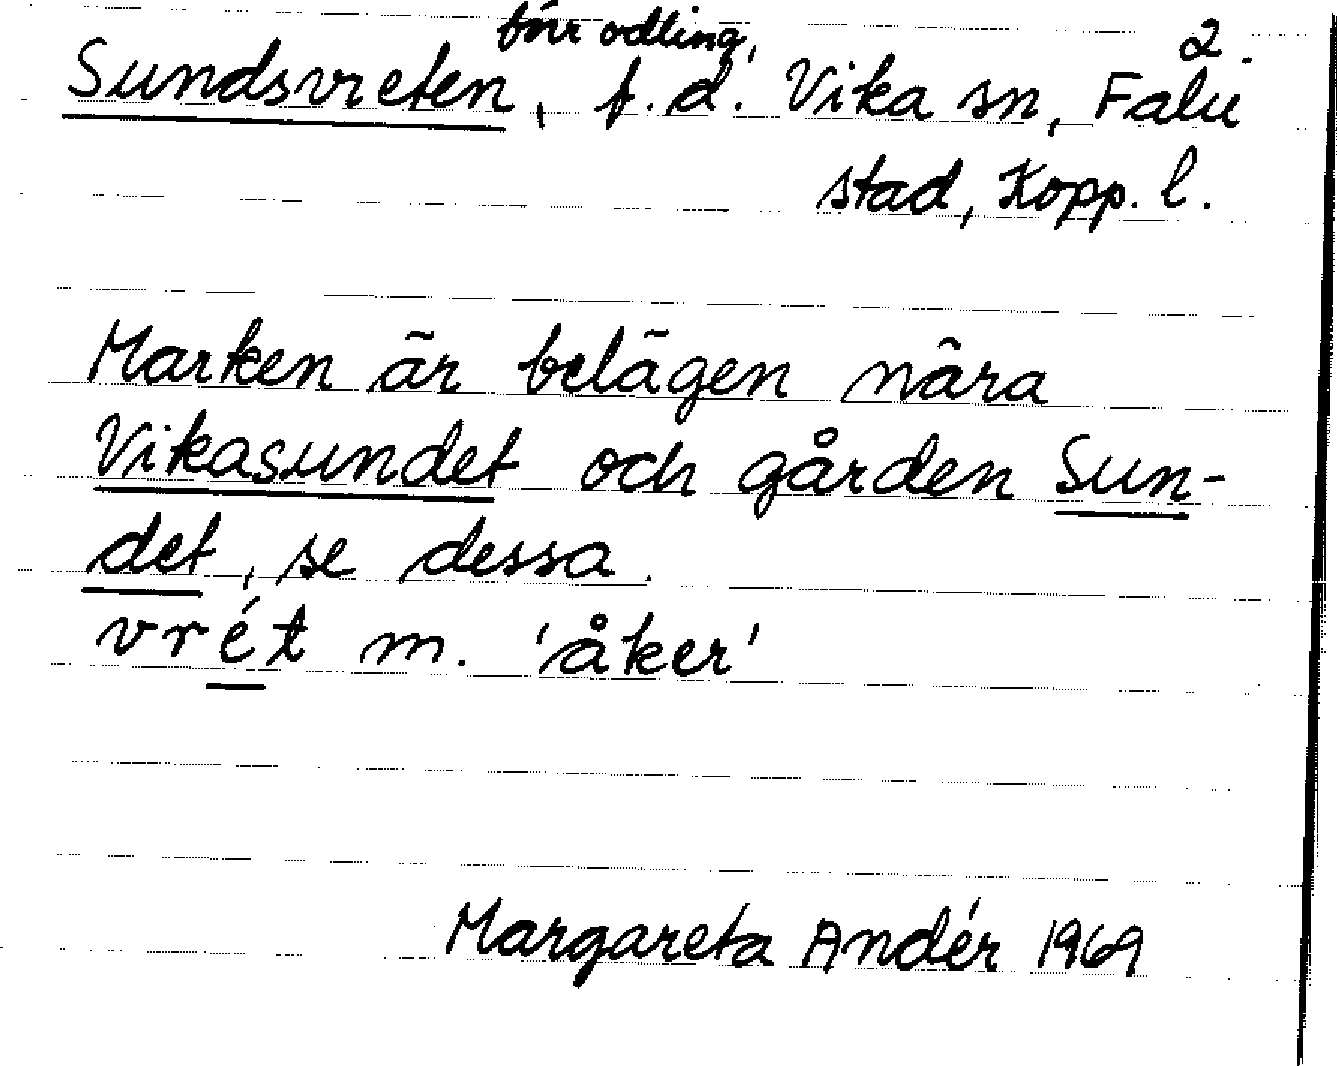 förr odling,
2.
Sundsvreten, f.d. Vika sn, Falu
stad, Kopp. l.
Marken är belägen nära
Vikasundet och gården Sun-
det, se dessa.
vrét m. 'åker'
Margareta Andér 1969